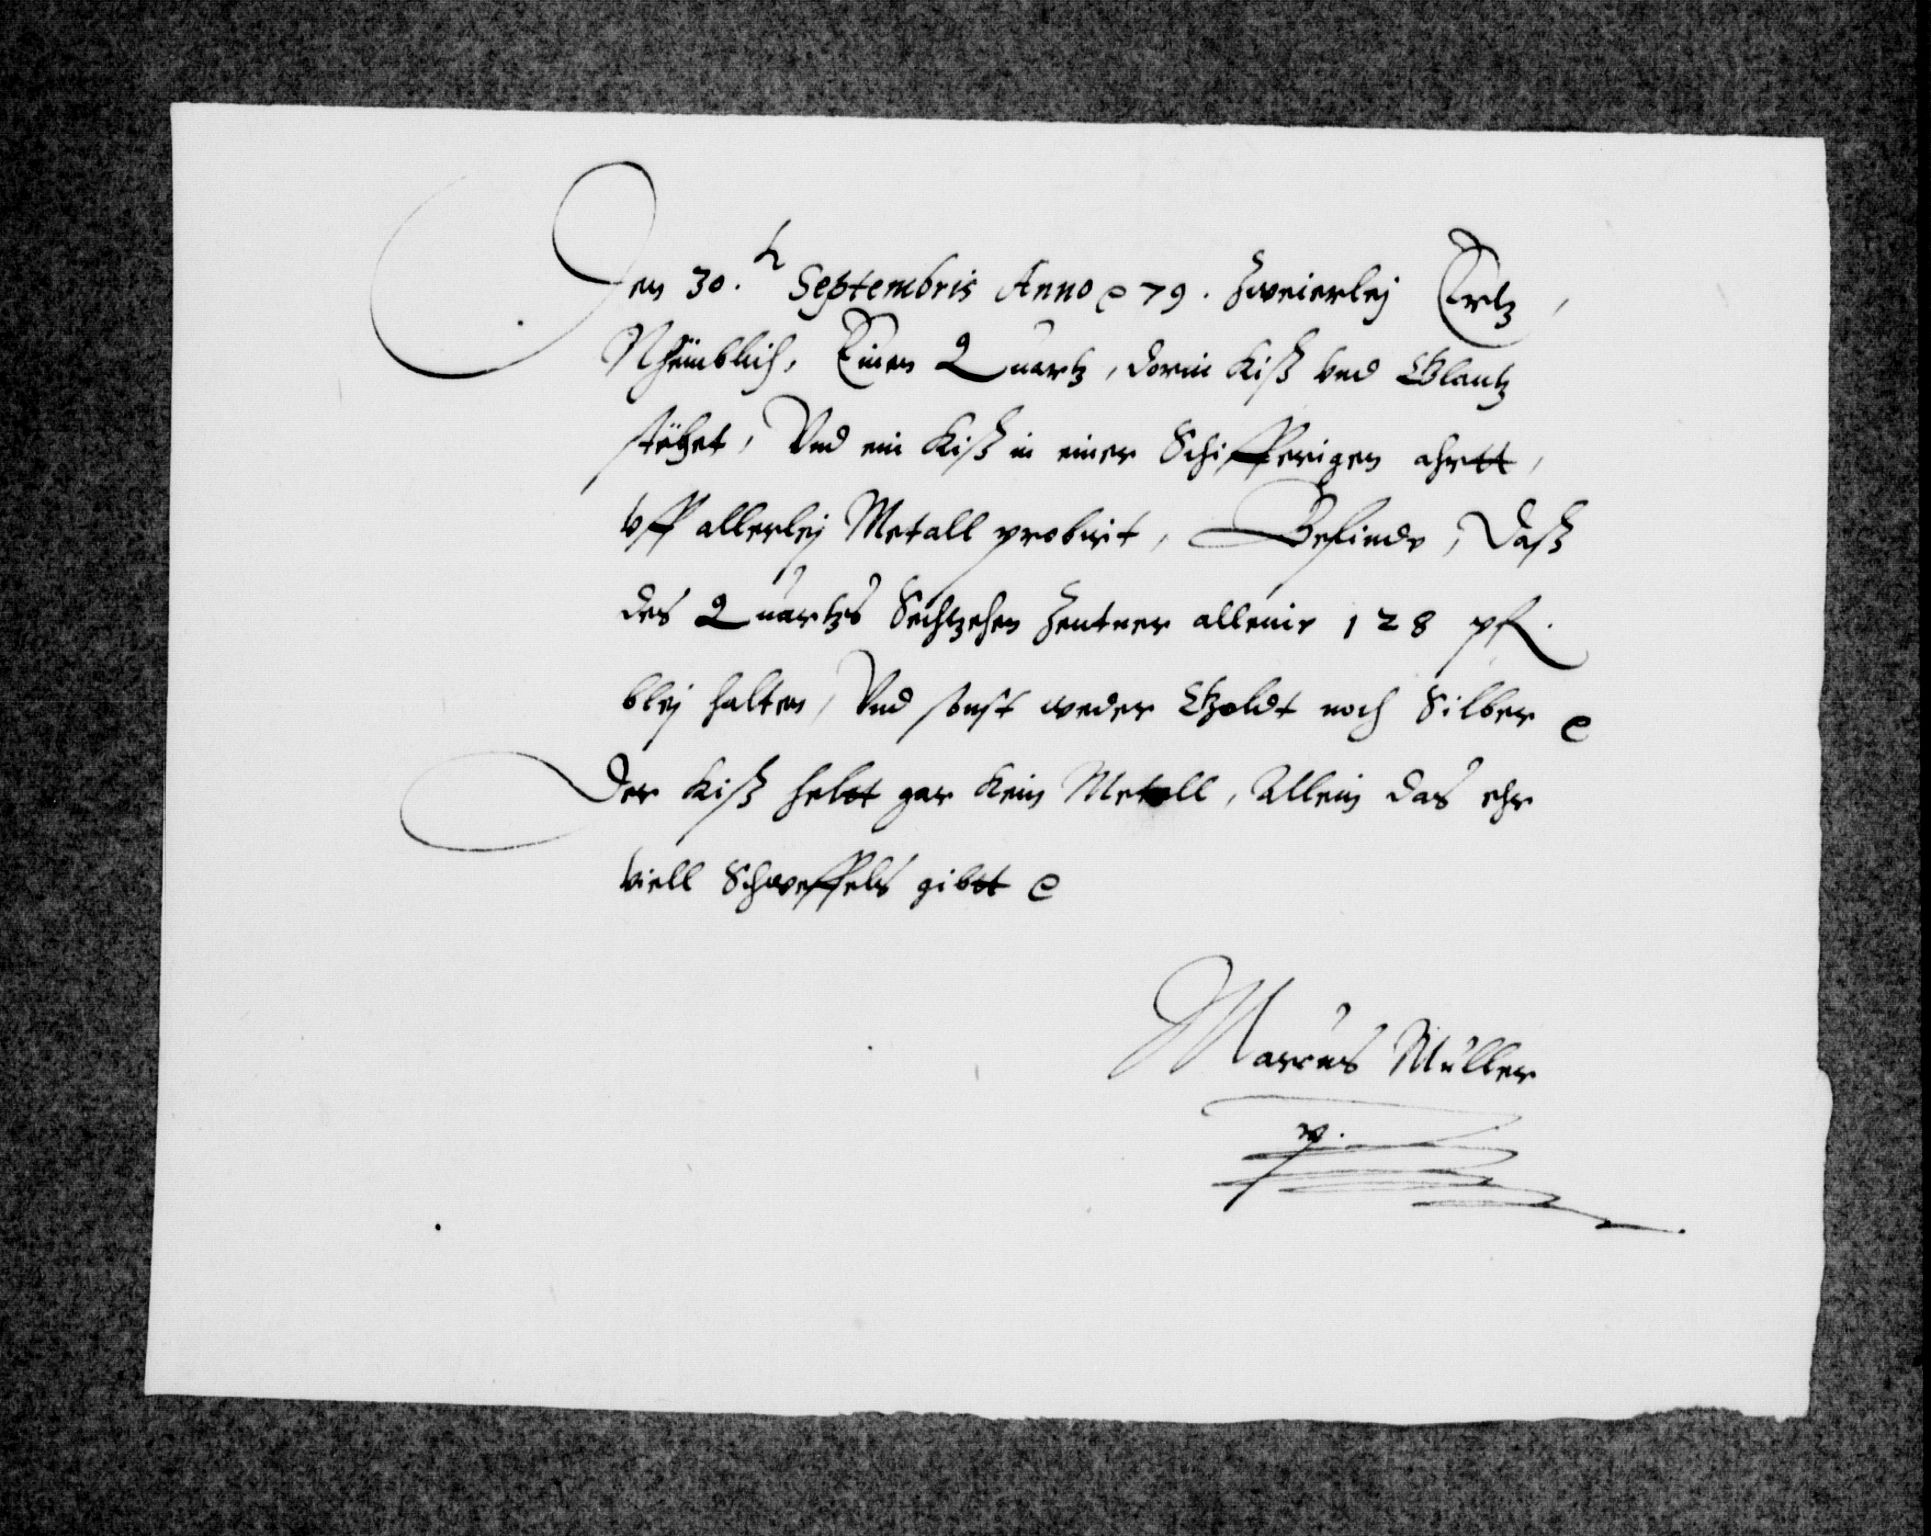 Den 30.ten Septembris Anno etc 79. Zweierleÿ Ertz,
Nhemblich, Einen Quartz, dorin Kiß vnd Glantz
stehet, Vnd ein Kiß in einer Schifferigen ahrtt,
vff allerleÿ Metall probirt, Befinde, Daß
des Quartzs Sechtzehen Zentner alleine 128 pf.
bleÿ halten, Vnd sonst weder Goldt noch Silber etc
Der Kiß heltt gar Kein Metall, Allein das ehr
viell Schweffels gibtt etc
Marcus Müller